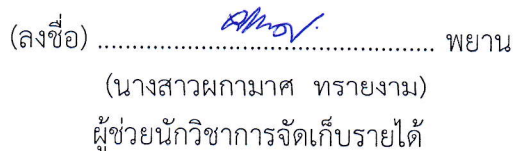 (ลงชื่อ) ........................................................ พยาน
(นางสาวผกามาศ ทรายงาม)
ผู้ช่วยนักวิชาการจัดเก็บรายได้